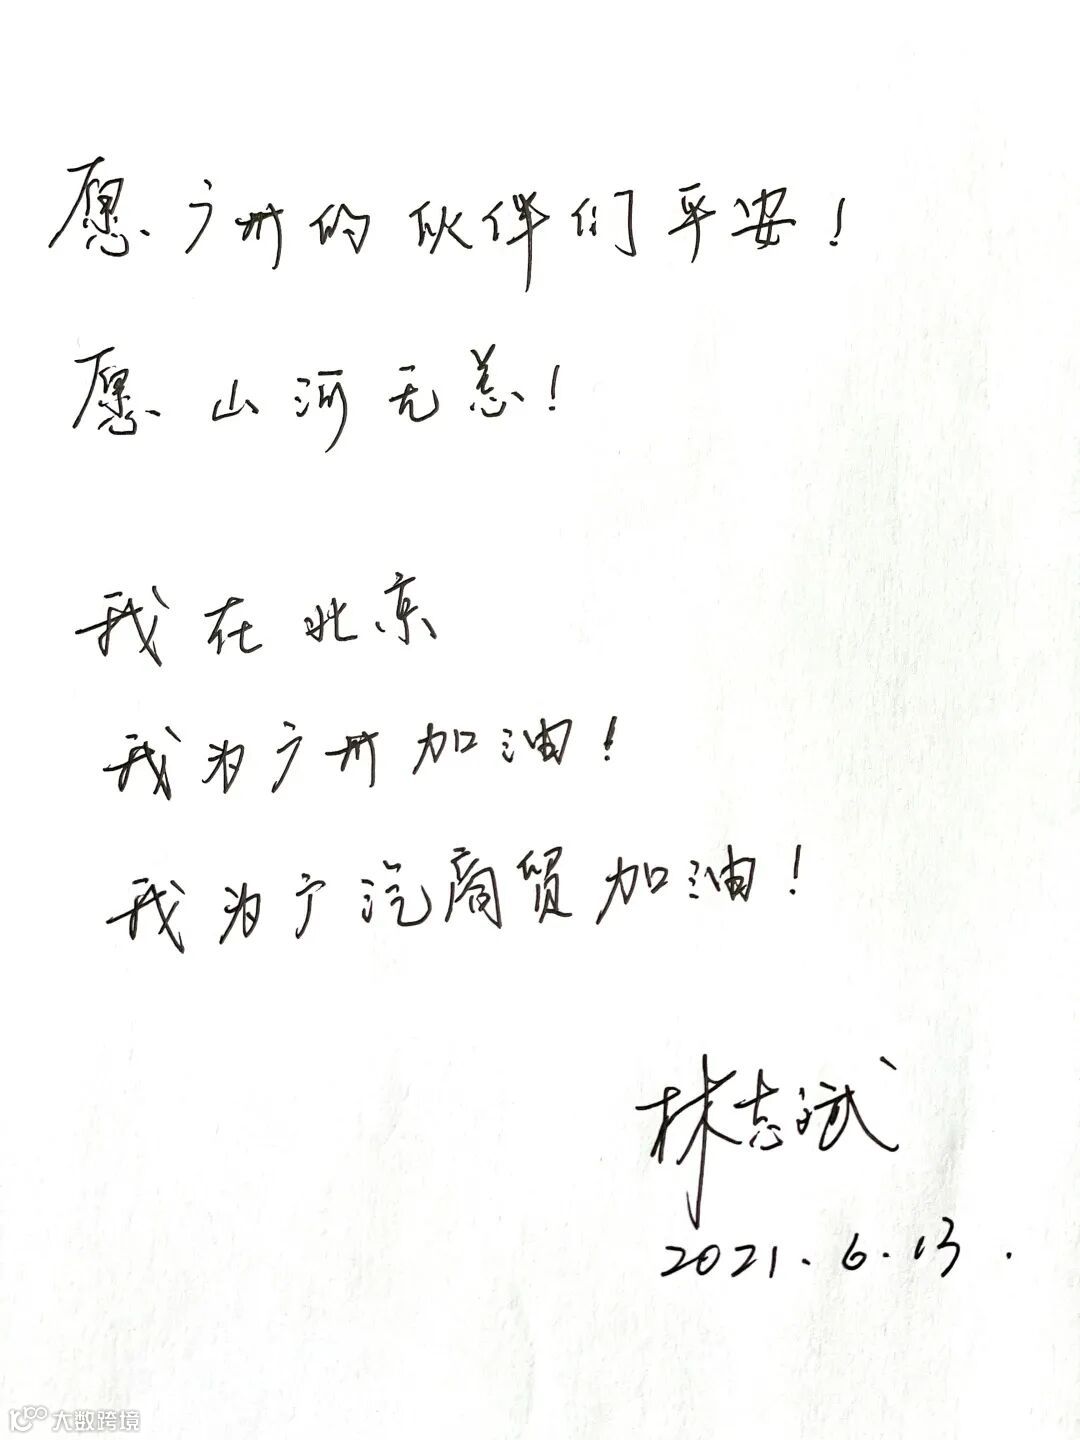 愿广州的伙伴们平安！
愿山河无恙！
我在北京
我为广州加油！
我为广汽商贸加油！
林志斌
2021.6.13.
大数跨境